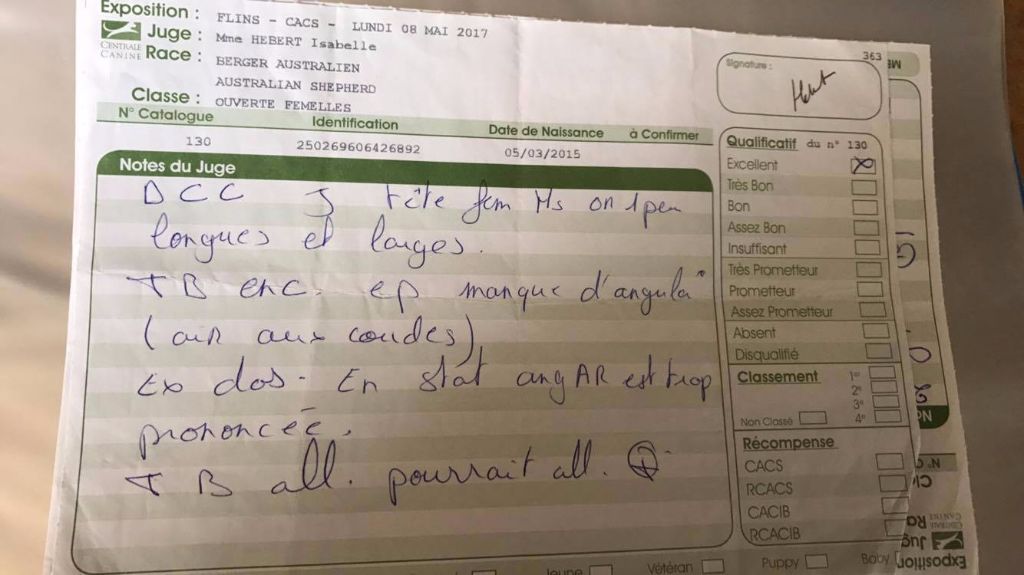 Exposition : FLINS - CACS - LUNDI 08 MAI 2017
Juge : Mme HEBERT Isabelle
CENTRALE CANINE
Race : BERGER AUSTRALIEN
AUSTRALIAN SHEPHERD
Classe : OUVERTE FEMELLES
363
Signature :
N° Catalogue Identification Date de Naissance à Confirmer
130 250269606426892 05/03/2015
Notes du Juge
DCC tête fem Ms on 1 peu
longues et larges.
TB enc. ep manque d'angula°
(air aux coudes)
Ex dos. En stat ang AR est trop
prononcée.
TB all. pourrait all.
Qualificatif du n° 130
Excellent
Très Bon
Bon
Assez Bon
Insuffisant
Très Prometteur
Prometteur
Assez Prometteur
Absent
Disqualifié
Classement 1er
2e
3e
Non Classé 4e
Récompense
CACS
RCACS
CACIB
RCACIB
Jeune Vétéran Puppy Baby
Exposition
Juge
CENTRALE CANINE